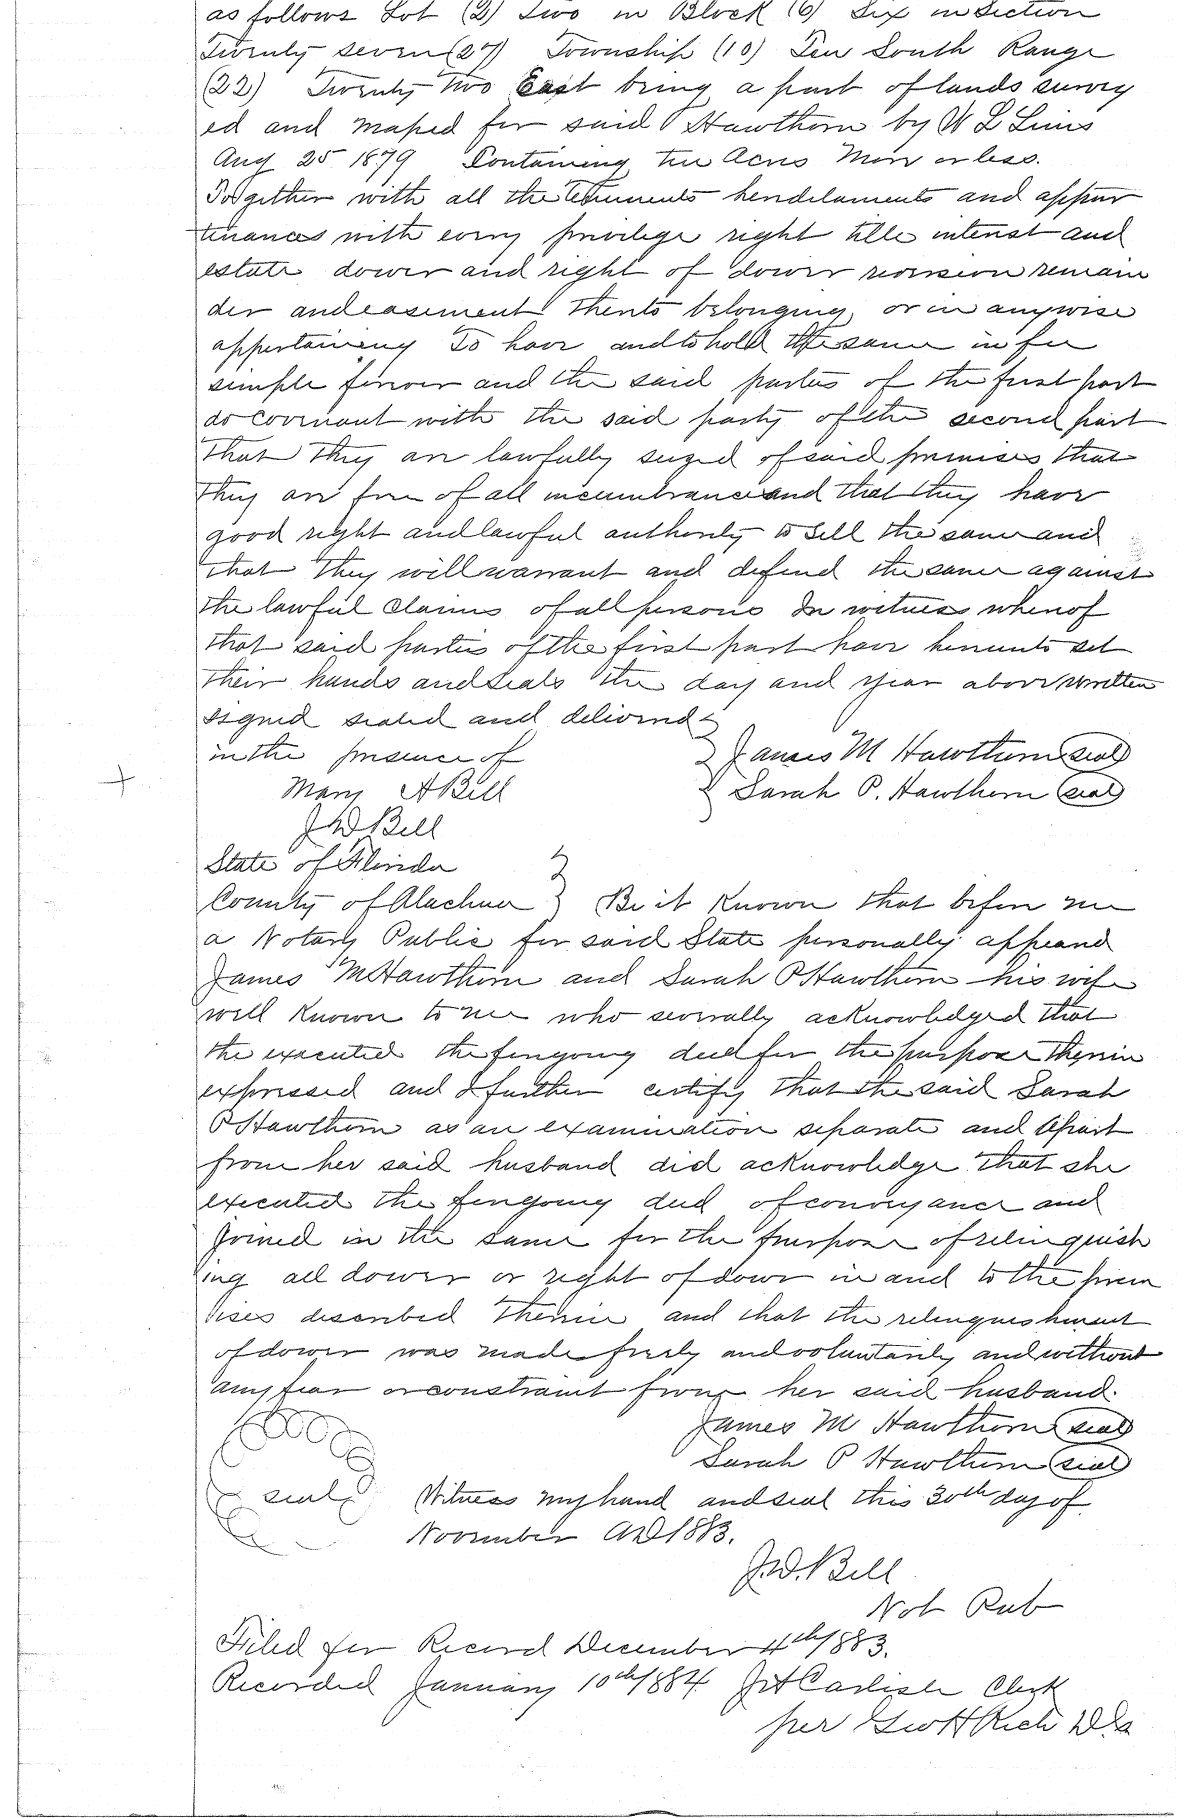 as follows Lot (2) Two in Block (6) Six in Section
Twenty seven (27) Township (10) Ten South Range
(22) Twenty Two East being a part of lands survey
ed and maped for said Hawthorn by W L
Aug 25 1879 Containing ten Acres More or less.
Together with all the tenements hendelaments and appur
tinances with every privilege right title interest and
estate dower and right of dower reversion remain
der and easement thereto belonging or in anywise
appertaining To have and to hold the same in fee
simple forever and the said parties of the first part
do covenant with the said party of the second part
that they are lawfully seized of said premises that
they are free of all incumbrances and that they have
good right and lawful authority to sell the same and
that they will warrant and defend the same against
the lawful claims of all persons In witness whereof
that said parties of the first part have hereunto set
their hands and seals the day and year above written
signed sealed and delivered
in the presence of James M Hawthorn seal
Mary A Bell Sarah P. Hawthorn seal
J W Bell
State of Florida
County of Alachua } Be it known that before me
a Notary Public for said State personally appeared
James M Hawthorn and Sarah P Hawthorn his wife
well known to me who severally acknowledged that
the executed the foregoing deed for the purpose therein
expressed and I further certify that the said Sarah
P Hawthorn as an examination separate and apart
from her said husband did acknowledge that she
executed the foregoing deed of conveyance and
joined in the same for the purpose of relinquish
ing all dower or right of dower in and to the prem
ises described therein and that the relinquishment
of dower was made freely and voluntarily and without
any fear or constraint from her said husband.
James M Hawthorn seal
Sarah P Hawthorn seal
seal Witness my hand and seal this 30th day of
November AD 1883.
J.W. Bell
Not Pub
Filed for Record December 4th 1883.
Recorded January 10th 1884 J A Carlisle Clerk
per Geo H Rich D.C.